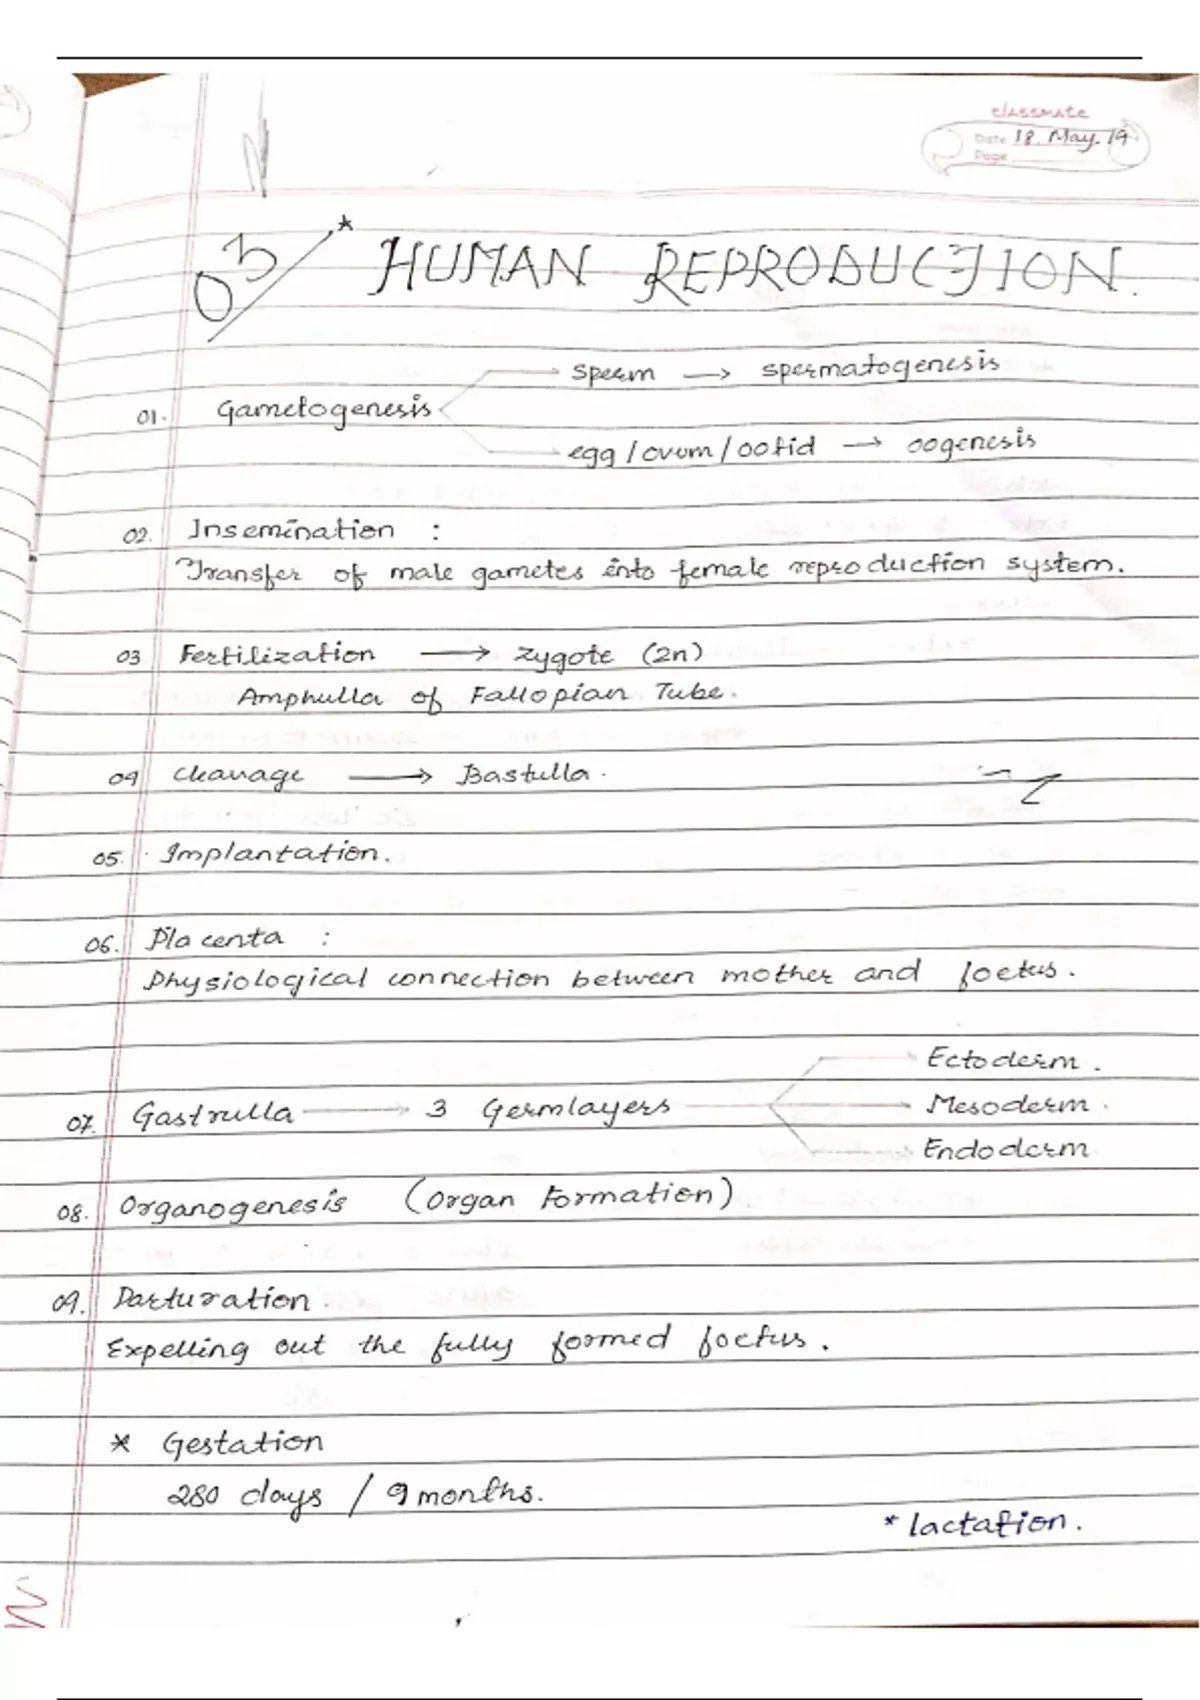 classmate
Date 18. May. 19
Page
03 * HUMAN REPRODUCTION.
sperm → spermatogenesis
01. Gametogenesis
egg / ovum / ootid → oogenesis
02. Insemination :
Transfer of male gametes into female reproduction system.
03 Fertilization → zygote (2n)
Amphulla of Fallopian Tube.
04 Cleavage → Bastulla.
05. Implantation.
06. Placenta :
Physiological connection between mother and foetus.
Ectoderm.
07. Gastrulla → 3 Germlayers → Mesoderm.
Endoderm
08. Organogenesis (organ Formation)
09. Parturation.
Expelling out the fully formed foetus.
* Gestation
280 days / 9 months.
* lactation.